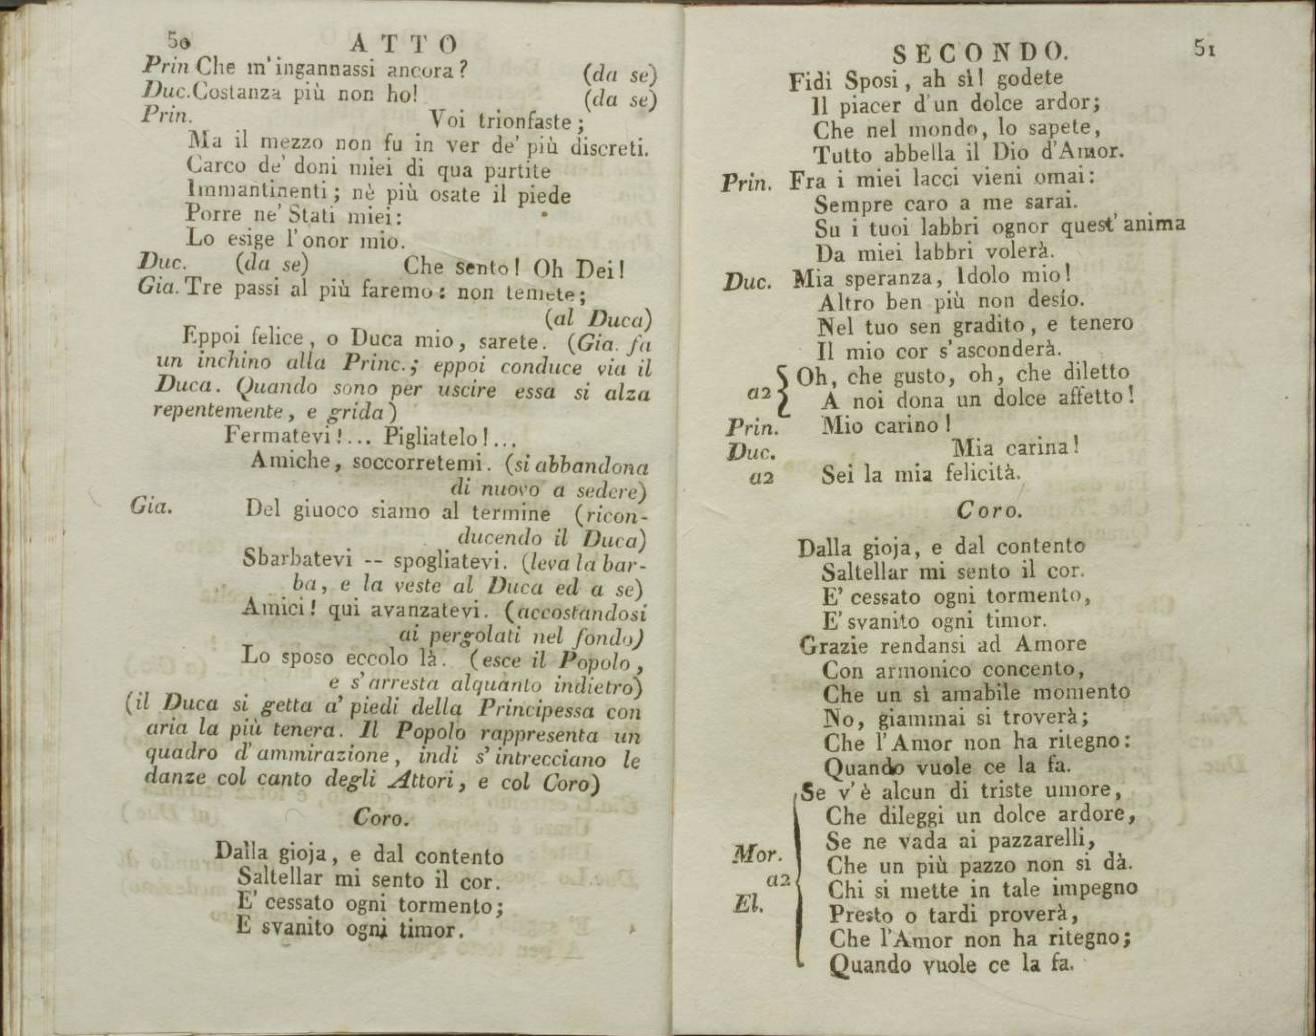 50
ATTO
Prin Che m'ingannassi ancora? (da se)
Duc. Costanza più non ho! (da se)
Prin. Voi trionfaste;
Ma il mezzo non fu in ver de' più discreti.
Carco de' doni miei di qua partite
Immantinenti; nè più osate il piede
Porre ne' Stati miei:
Lo esige l'onor mio.
Duc. (da se) Che sento! Oh Dei!
Gia. Tre passi al più faremo: non temete;
(al Duca)
Eppoi felice, o Duca mio, sarete. (Gia. fa
un inchino alla Princ.; eppoi conduce via il
Duca. Quando sono per uscire essa si alza
repentemente, e grida)
Fermatevi!... Pigliatelo!...
Amiche, soccorretemi. (si abbandona
di nuovo a sedere)
Gia. Del giuoco siamo al termine (ricon-
ducendo il Duca)
Sbarbatevi -- spogliatevi. (leva la bar-
ba, e la veste al Duca ed a se)
Amici! qui avanzatevi. (accostandosi
ai pergolati nel fondo)
Lo sposo eccolo là. (esce il Popolo,
e s'arresta alquanto indietro)
(il Duca si getta a' piedi della Principessa con
aria la più tenera. Il Popolo rappresenta un
quadro d'ammirazione, indi s'intrecciano le
danze col canto degli Attori, e col Coro)
Coro.
Dalla gioja, e dal contento
Saltellar mi sento il cor.
E' cessato ogni tormento;
E svanito ogni timor.
SECONDO.
51
Fidi Sposi, ah sì! godete
Il piacer d'un dolce ardor;
Che nel mondo, lo sapete,
Tutto abbella il Dio d'Amor.
Prin. Fra i miei lacci vieni omai:
Sempre caro a me sarai.
Su i tuoi labbri ognor quest'anima
Da miei labbri volerà.
Duc. Mia speranza, Idolo mio!
Altro ben più non desío.
Nel tuo sen gradito, e tenero
Il mio cor s'asconderà.
a2 { Oh, che gusto, oh, che diletto
A noi dona un dolce affetto!
Prin. Mio carino!
Duc. Mia carina!
a2 Sei la mia felicità.
Coro.
Dalla gioja, e dal contento
Saltellar mi sento il cor.
E' cessato ogni tormento,
E' svanito ogni timor.
Grazie rendansi ad Amore
Con armonico concento,
Che un sì amabile momento
No, giammai si troverà;
Che l'Amor non ha ritegno:
Quando vuole ce la fa.
Se v'è alcun di triste umore,
Che dileggi un dolce ardore,
Se ne vada ai pazzarelli,
Mor. Che un più pazzo non si dà.
a2 Chi si mette in tale impegno
El. Presto o tardi proverà,
Che l'Amor non ha ritegno;
Quando vuole ce la fa.